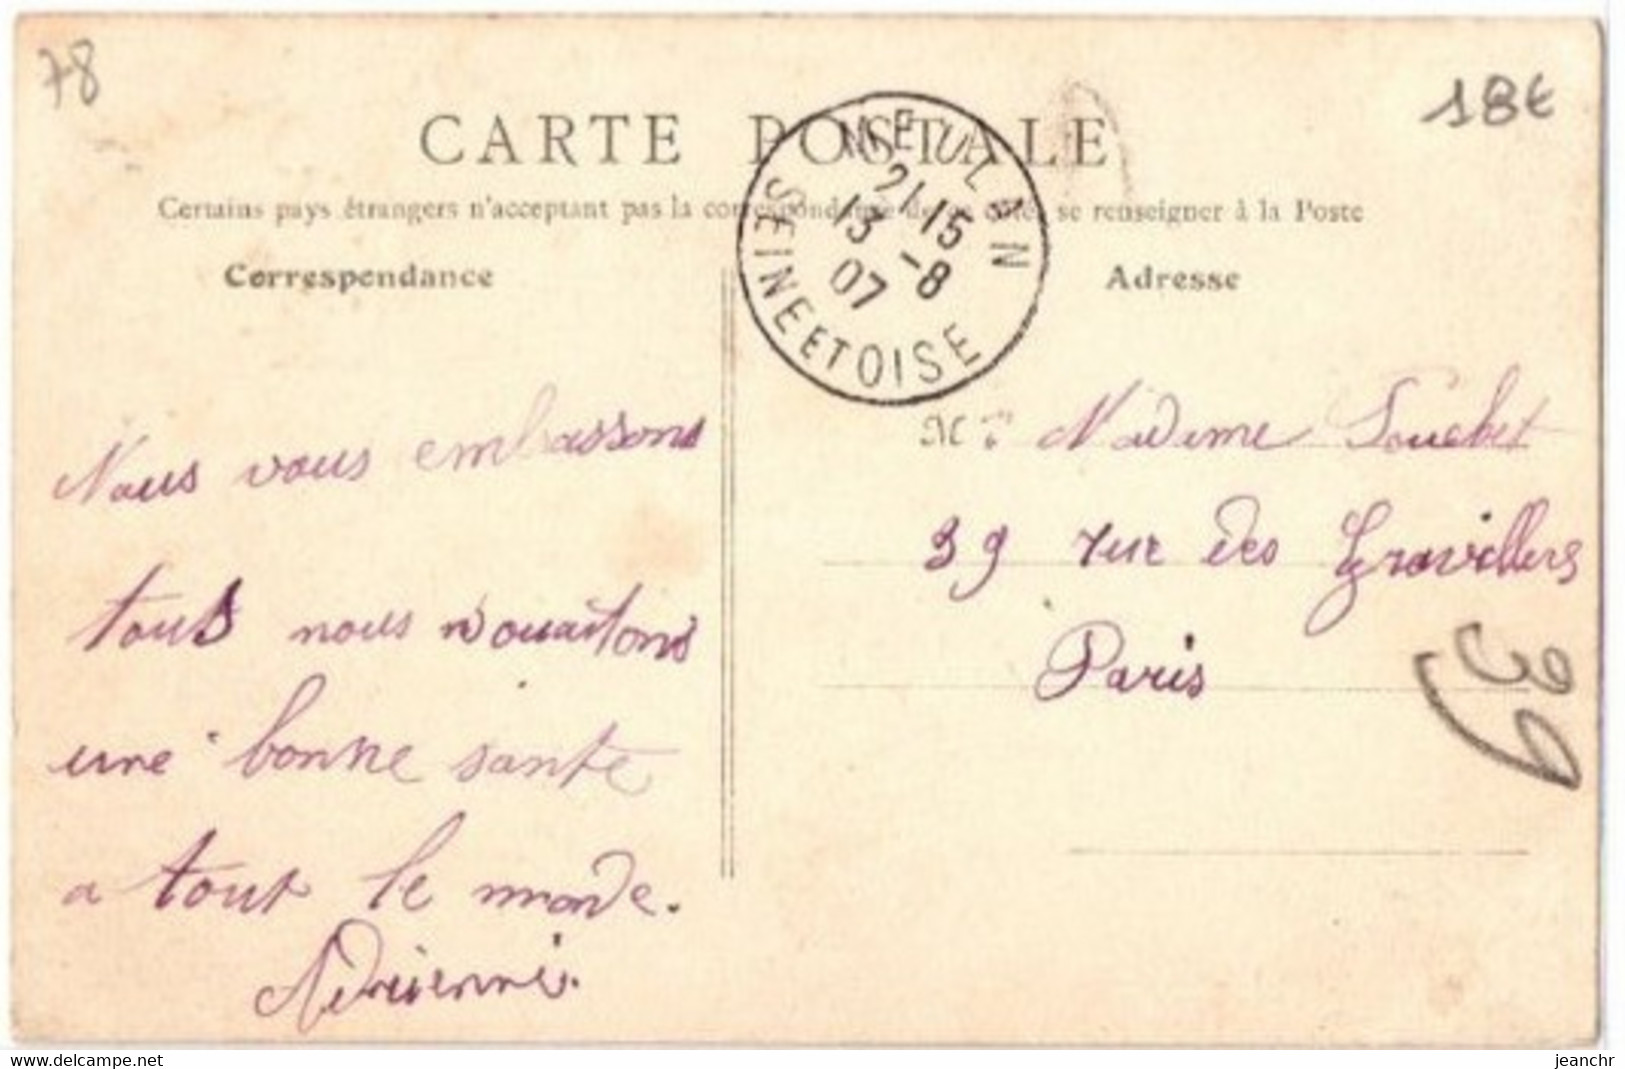 78
18€
CARTE POSTALE
Certains pays étrangers n'acceptant pas la correspondance de ce côté, se renseigner à la Poste
MEULAN
21 15
13 -8
07
SEINE ET OISE
Correspondance
Adresse
Nous vous embassons
tous nous souaitons
une bonne sante
a tout le monde.
Adrienne.
Madame Souchet
39 rue des Gravillers
Paris
39
delcampe.net
jeanchr